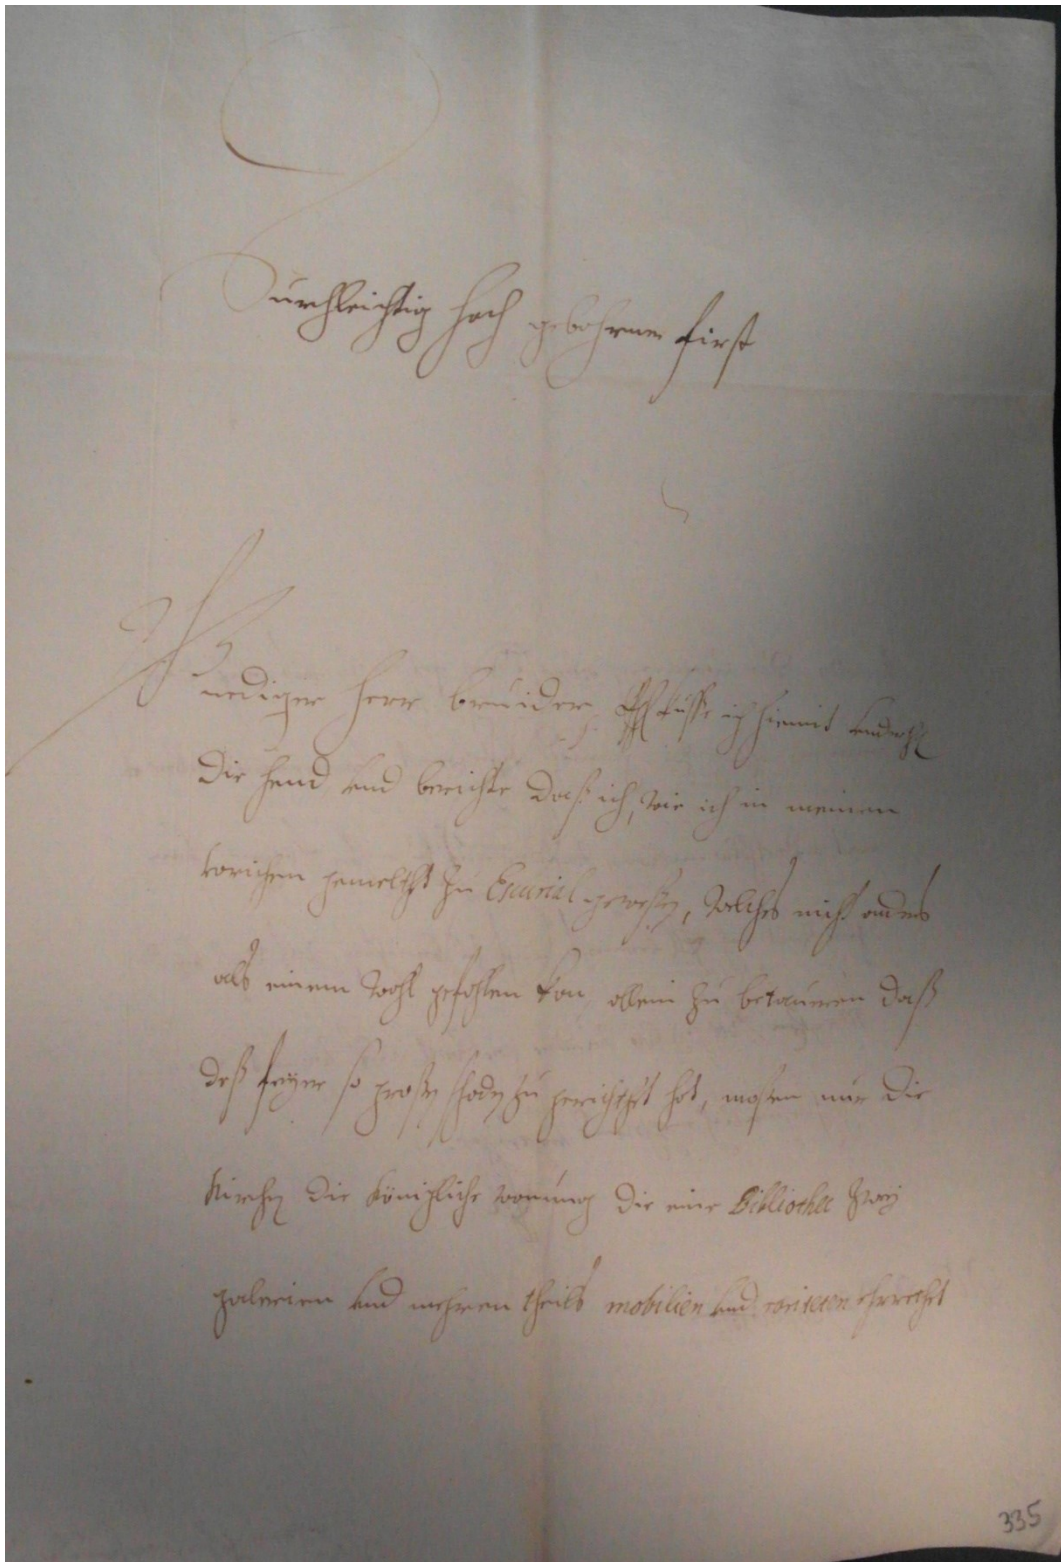 Durchleichtig hoch gebohrner first
Gnediger herr bruider, küsse ich hiemit
die hend und berichte daß ich, wie ich in meinen
vorichen gemelthet zu Escurial gewessen, welches nicht anders
als einem wohl gefohlen kan, allein zu betaueren daß
deß feyer so grossen schoden zu gerichthet hot, mossen nur die
Kirchen die königliche wonung die eine Bibliothec zwey
galerien und mehren theils mobilien und rariteten
335